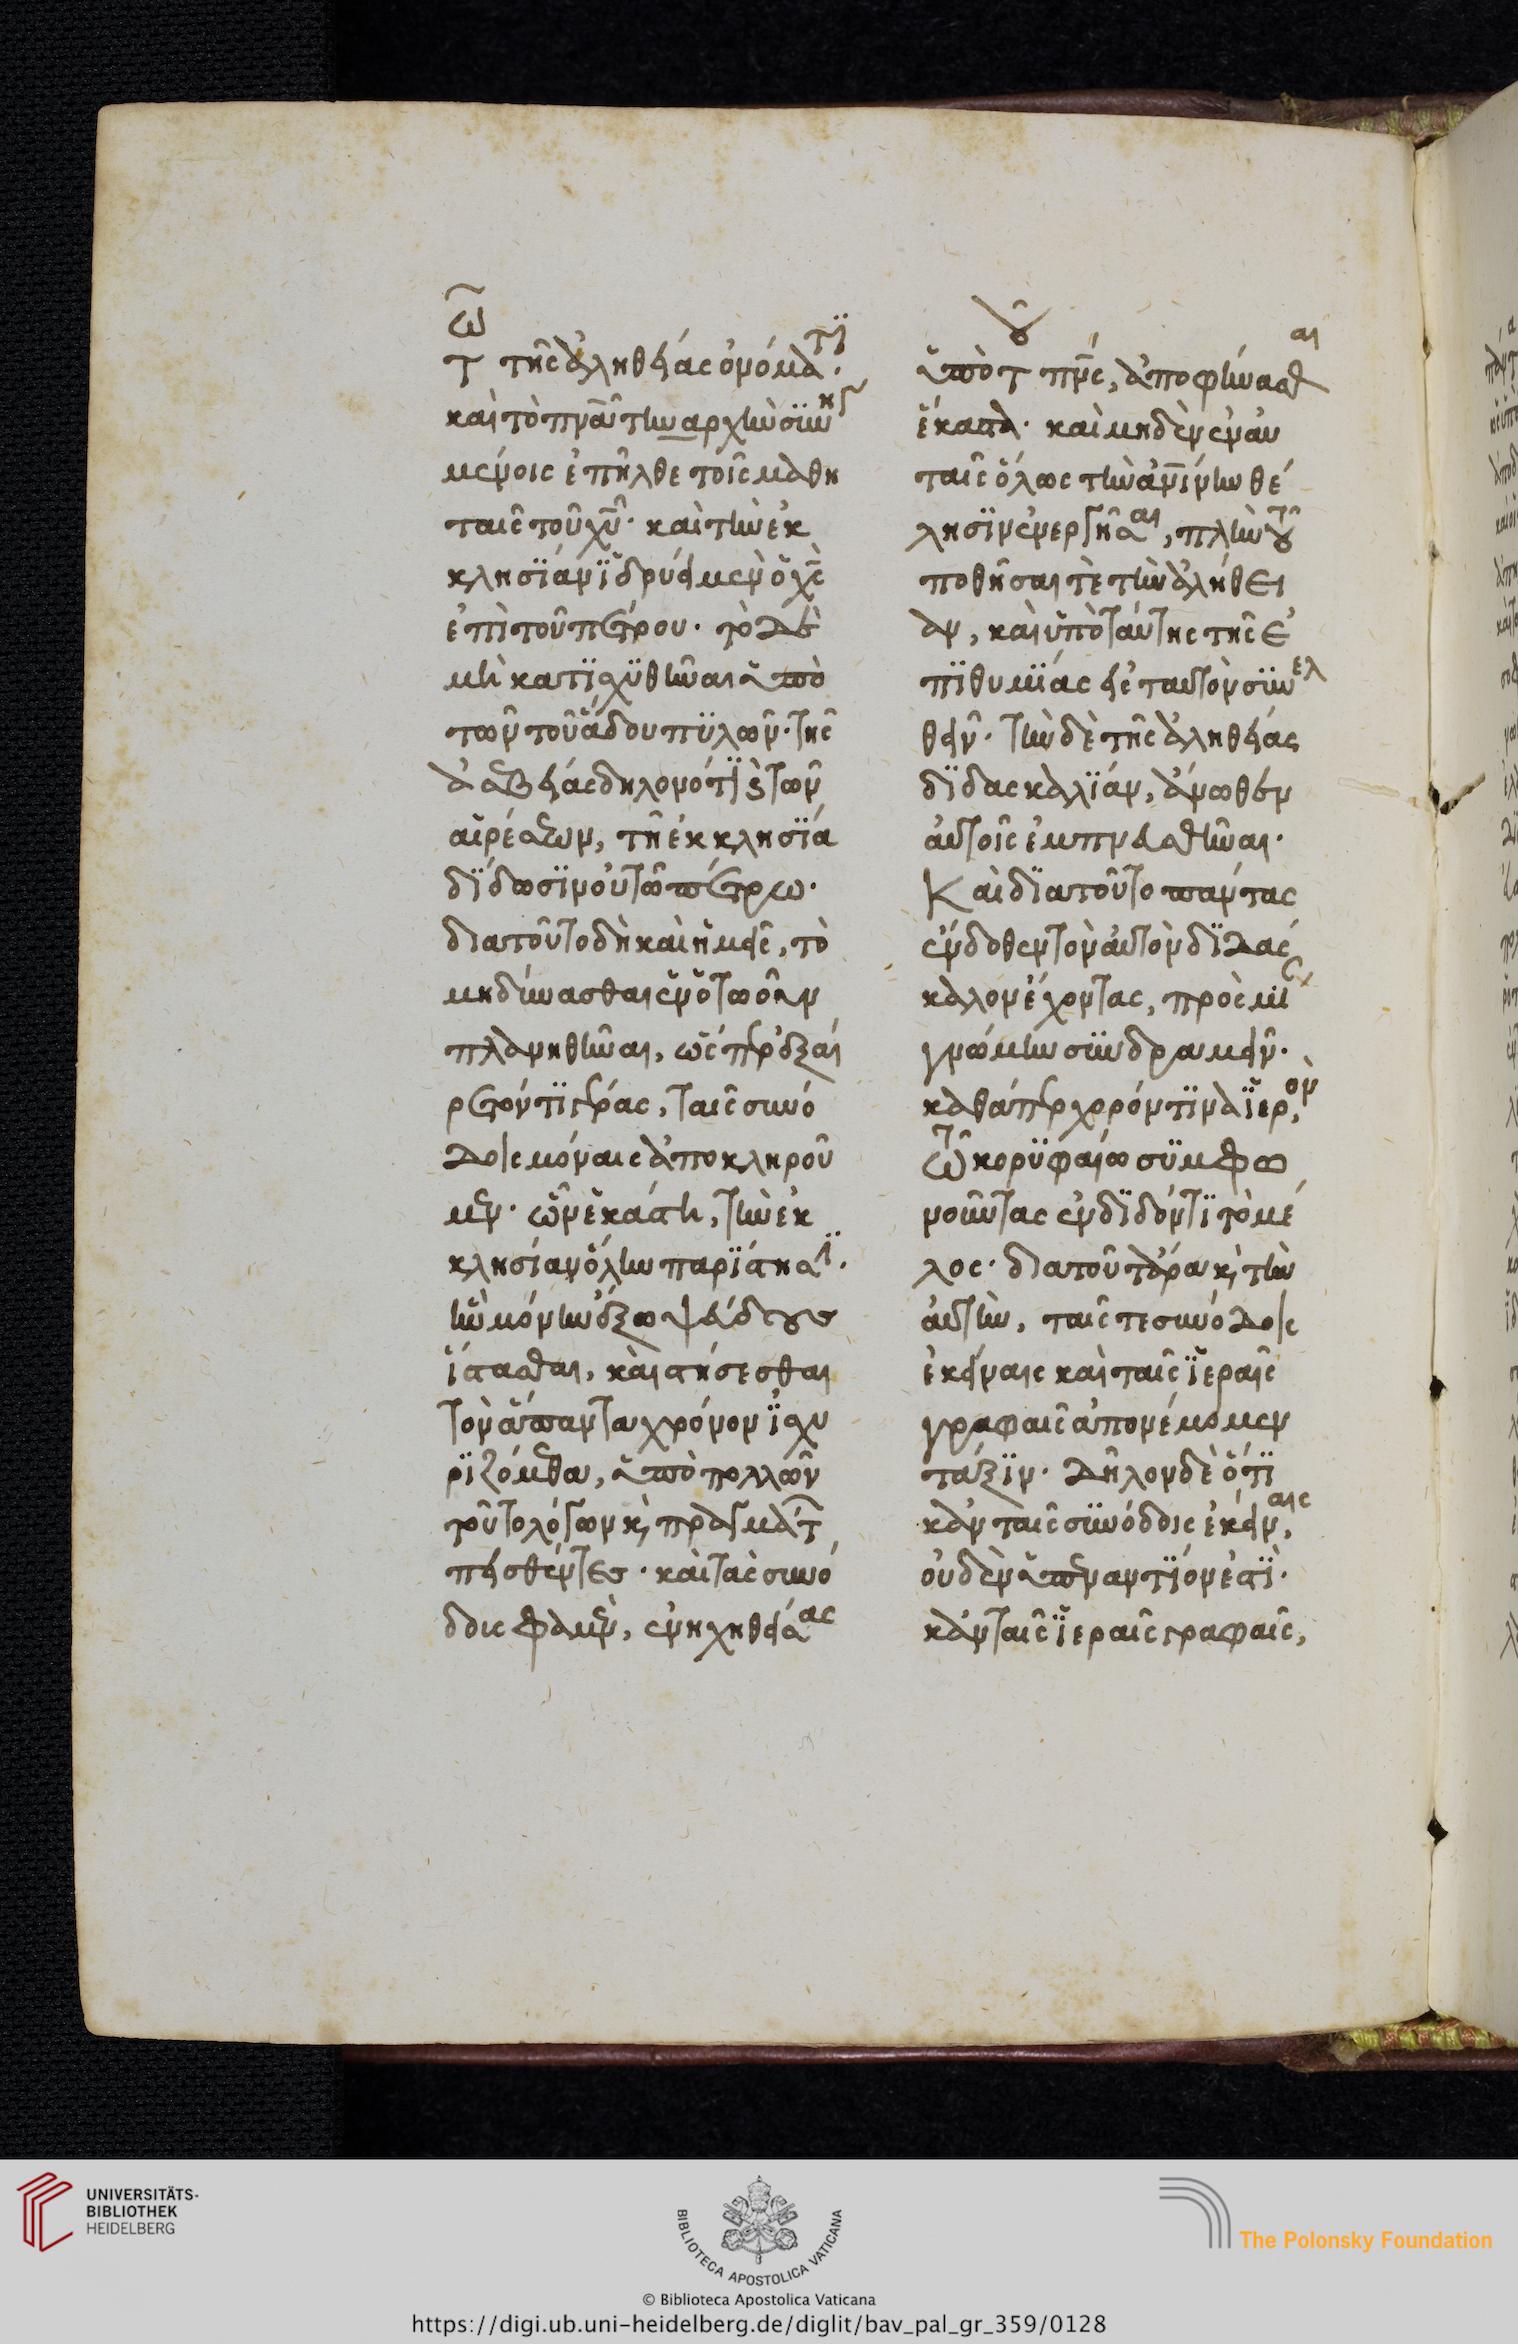 τῶ τῆς ἀληθείας ὀνόματι·
καὶ τὸ πνᾶ τὴν ἀρχὴν συνηγ
μένοις ἐπῆλθε τοῖς μαθη
ταῖς τοῦ χῦ· καὶ τὴν ἐκ
κλησίαν ἱδρύει μὲν ὁ χς
ἐπὶ τοῦ πέτρου· τὸ δὲ
μὴ κατισχυθῆναι ὑπὸ
τῶν τοῦ ἅδου πυλῶν· τῆς
ἀσεβείας δηλονότι καὶ τῶν
αἱρέσεων, τῆ ἐκκλησία
δίδωσιν οὐ τῶ πέτρω·
διατοῦτο δὴ καὶ ἡμεῖς, τὸ
μὴ δύνασθαι ἐν ὁτωοῦν
πλανηθῆναι, ὥσπερ ἐξαί
ρετόν τι γέρας, ταῖς συνό
δοις μόναις ἀποκληροῦ
μεν· ὧν ἑκάστη, τὴν ἐκ
κλησίαν ὅλην παρίστησι·
ἣν μόνην ἔξω ψεύδους
ἵστασθαι, καὶ στήσεσθαι
τὸν ἅπαντα χρόνον ἰσχυ
ριζόμεθα, ὑπὸ πολλῶν
τοῦτο λόγων καὶ πραγμάτων
πεισθέντες· καὶ τὰς συνό
δους φαμὲν, ἐνηχηθείσας
ὑπὸ τοῦ πνς, ἀποφήνασθαι
ἕκαστα· καὶ μηδὲν ἐν αὐ
ταῖς ὅλως τὴν ἀνίνην θέ
λησιν ἐνεργῆσαι, πλὴν τοῦ
ποθῆσαι τὲ τὴν ἀλήθει
αν, καὶ ὑπὸ ταύτης τῆς ἐ
πιθυμίας εἰς ταυτὸν συνελ
θεῖν· τὴν δὲ τῆς ἀληθείας
διδασκαλίαν, ἄνωθεν
αὐτοῖς ἐμπνευσθῆναι·
Καὶ διατοῦτο πάντας
ἔνδοθεν τὸν αὐτὸν διδάσ
καλον ἔχοντας, πρὸς μίαν
γνώμην συνδραμεῖν·
καθάπερ χορόν τινα ἱερὸν,
τῶ κορυφαίω συμφω
νοῦντας ἐνδιδόντι τὸ μέ
λος· διατοῦτ' ἄρα καὶ τὴν
αὐτὴν, ταῖς τε συνόδοις
ἐκείναις καὶ ταῖς ἱεραῖς
γραφαῖς ἀπονέμομεν
τάξιν· δῆλον δὲ ὅτι
κἀν ταῖς συνόδοις ἐκείναις,
οὐδὲν ὑπεναντίον ἐστὶ·
κἀν ταῖς ἱεραῖς γραφαῖς,
UNIVERSITÄTS-
BIBLIOTHEK
HEIDELBERG
BIBLIOTECA APOSTOLICA VATICANA
The Polonsky Foundation
© Biblioteca Apostolica Vaticana
https://digi.ub.uni-heidelberg.de/diglit/bav_pal_gr_359/0128